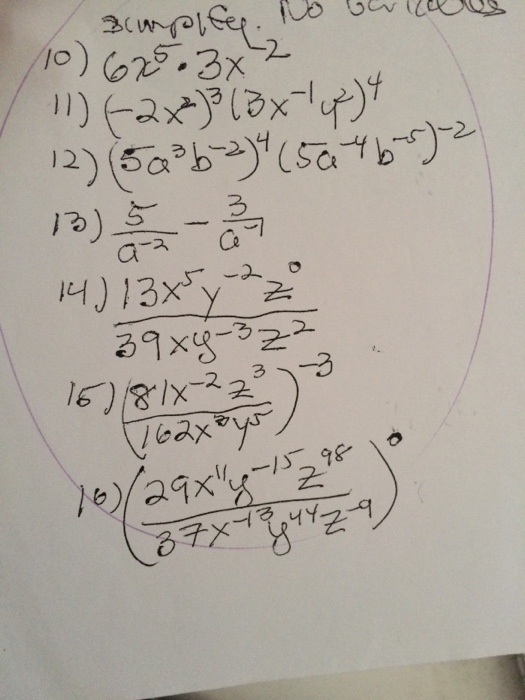 simplify. No variables
10) 6x⁵ · 3x⁻²
11) (-2x²)³(3x⁻¹y²)⁴
12) (5a³b⁻²)⁴(5a⁻⁴b⁻⁵)⁻²
13) 5/a⁻² − 3/a⁻¹
14) 13x⁵y⁻²z⁰ / 39xy⁻³z²
15) (81x⁻²z³ / 162x³y⁵)⁻³
16) (29x¹¹y⁻¹⁵z⁹⁸ / 37x⁻¹³y⁴⁴z⁻⁹)⁰